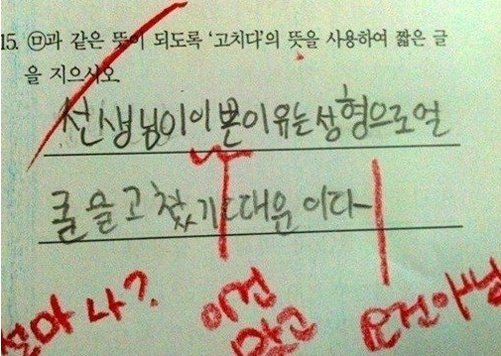 15. ㉤과 같은 뜻이 되도록 '고치다'의 뜻을 사용하여 짧은 글
을 지으시오
선생님이 이쁜이유는 성형으로 얼
굴을 고쳤기 때문이다
나?
이건
맞고
요건아님